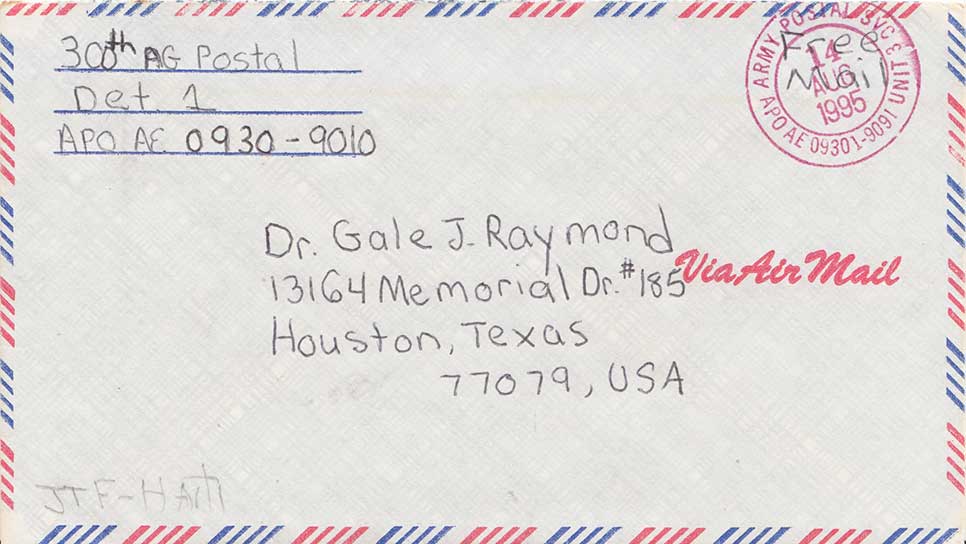 300th AG Postal
Det. 1
APO AE 0930-9010
Free
Mail
ARMY POSTAL SVC & UNIT
14
AUG
1995
APO AE 09301-9091
Dr. Gale J. Raymond
13164 Memorial Dr. #185
Houston, Texas
77079, USA
Via Air Mail
JTF-Haiti